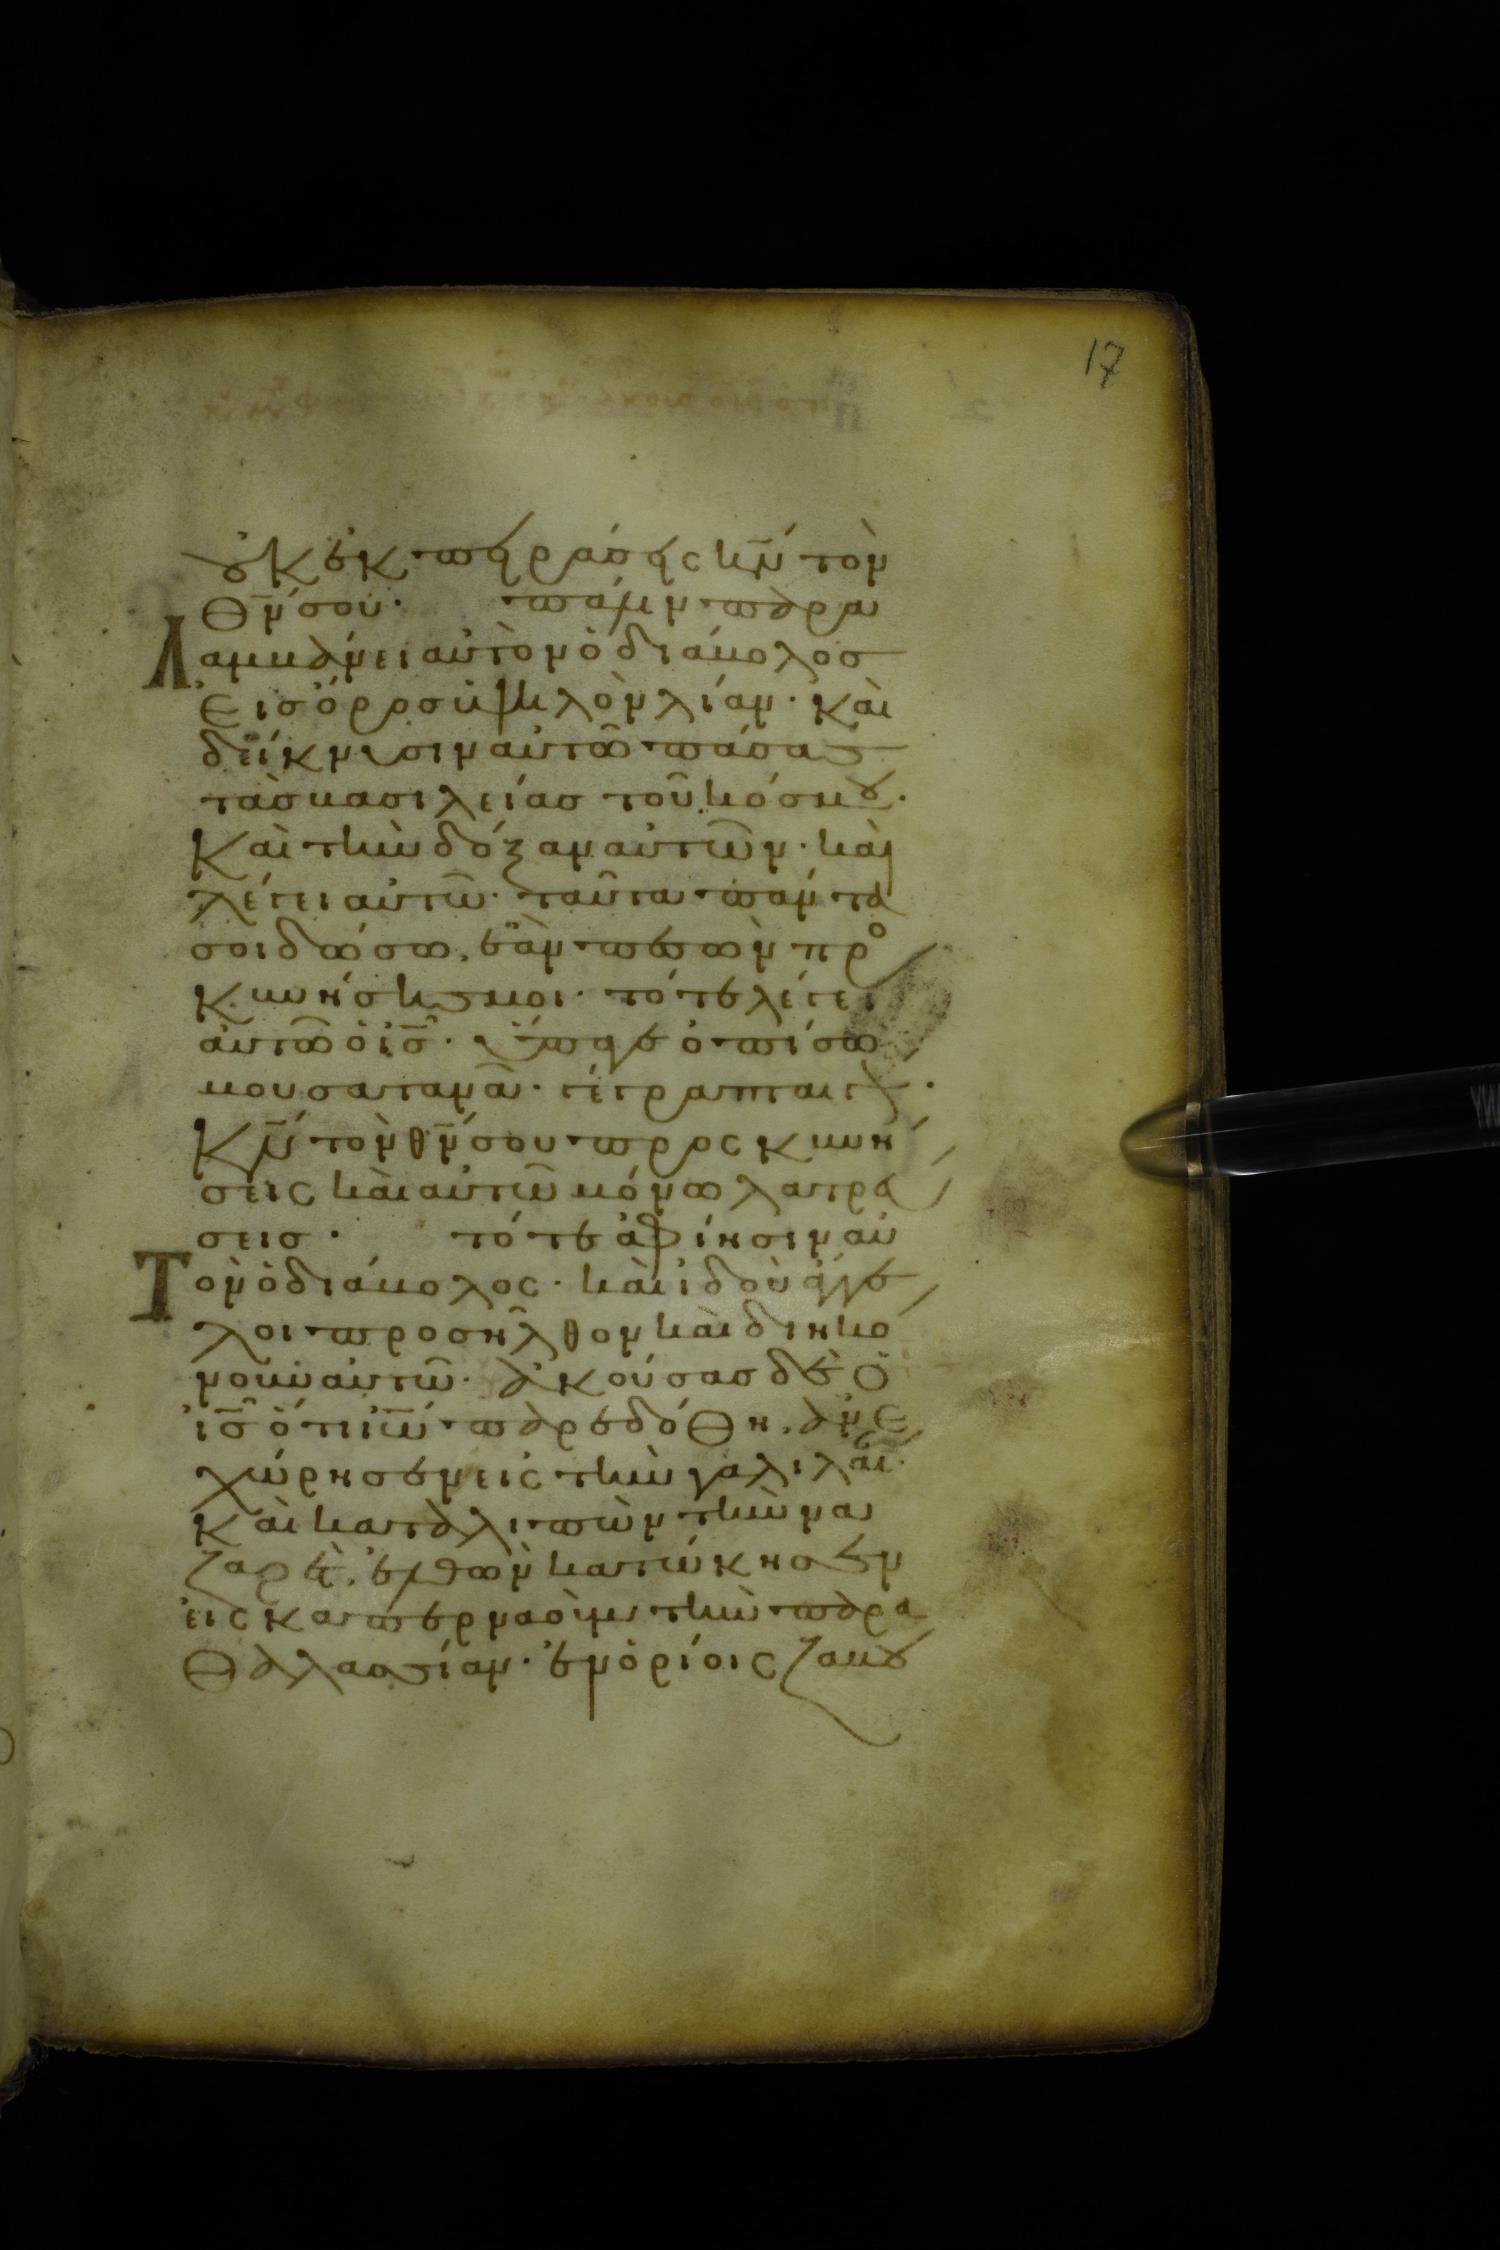 17
οὐκ ἐκπειράσεις κ̅ν̅ τὸν
θ̅ν̅ σου· πάλιν παρα
λαμβάνει αὐτὸν ὁ διάβολος
εἰς ὄρος ὑψηλὸν λίαν· καὶ
δείκνυσιν αὐτῶ πάσας
τὰς βασιλείας τοῦ κόσμου·
καὶ τὴν δόξαν αὐτῶν· καὶ
λέγει αὐτῶ· ταῦτα πάντα
σοι δώσω, ἐὰν πεσὼν προ
κυνήσης μοι· τότε λέγει
αὐτῶ ὁ ι̅ς̅· ὕπαγε ὀπίσω
μου σατανᾶ· γέγραπται γ·
κ̅ν̅ τὸν θ̅ν̅ σου προσκυνή
σεις καὶ αὐτῶ μόνω λατρεύ
σεις· τότε ἀφίησιν αὐ
τὸν ὁ διάβολος· καὶ ἰδοὺ ἄγγε
λοι προσῆλθον καὶ διηκό
νουν αὐτῶ· ἀκούσας δὲ ὁ
ι̅ς̅ ὅτι ἰω̅ παρεδόθη, ἀνε
χώρησεν εἰς τὴν γαλιλαί·
καὶ καταλιπὼν τὴν να
ζαρὲτ, ἐλθὼν κατώκησεν
εἰς καπερναοὺμ τὴν παρα
θαλασσίαν· ἐν ὁρίοις ζαβου